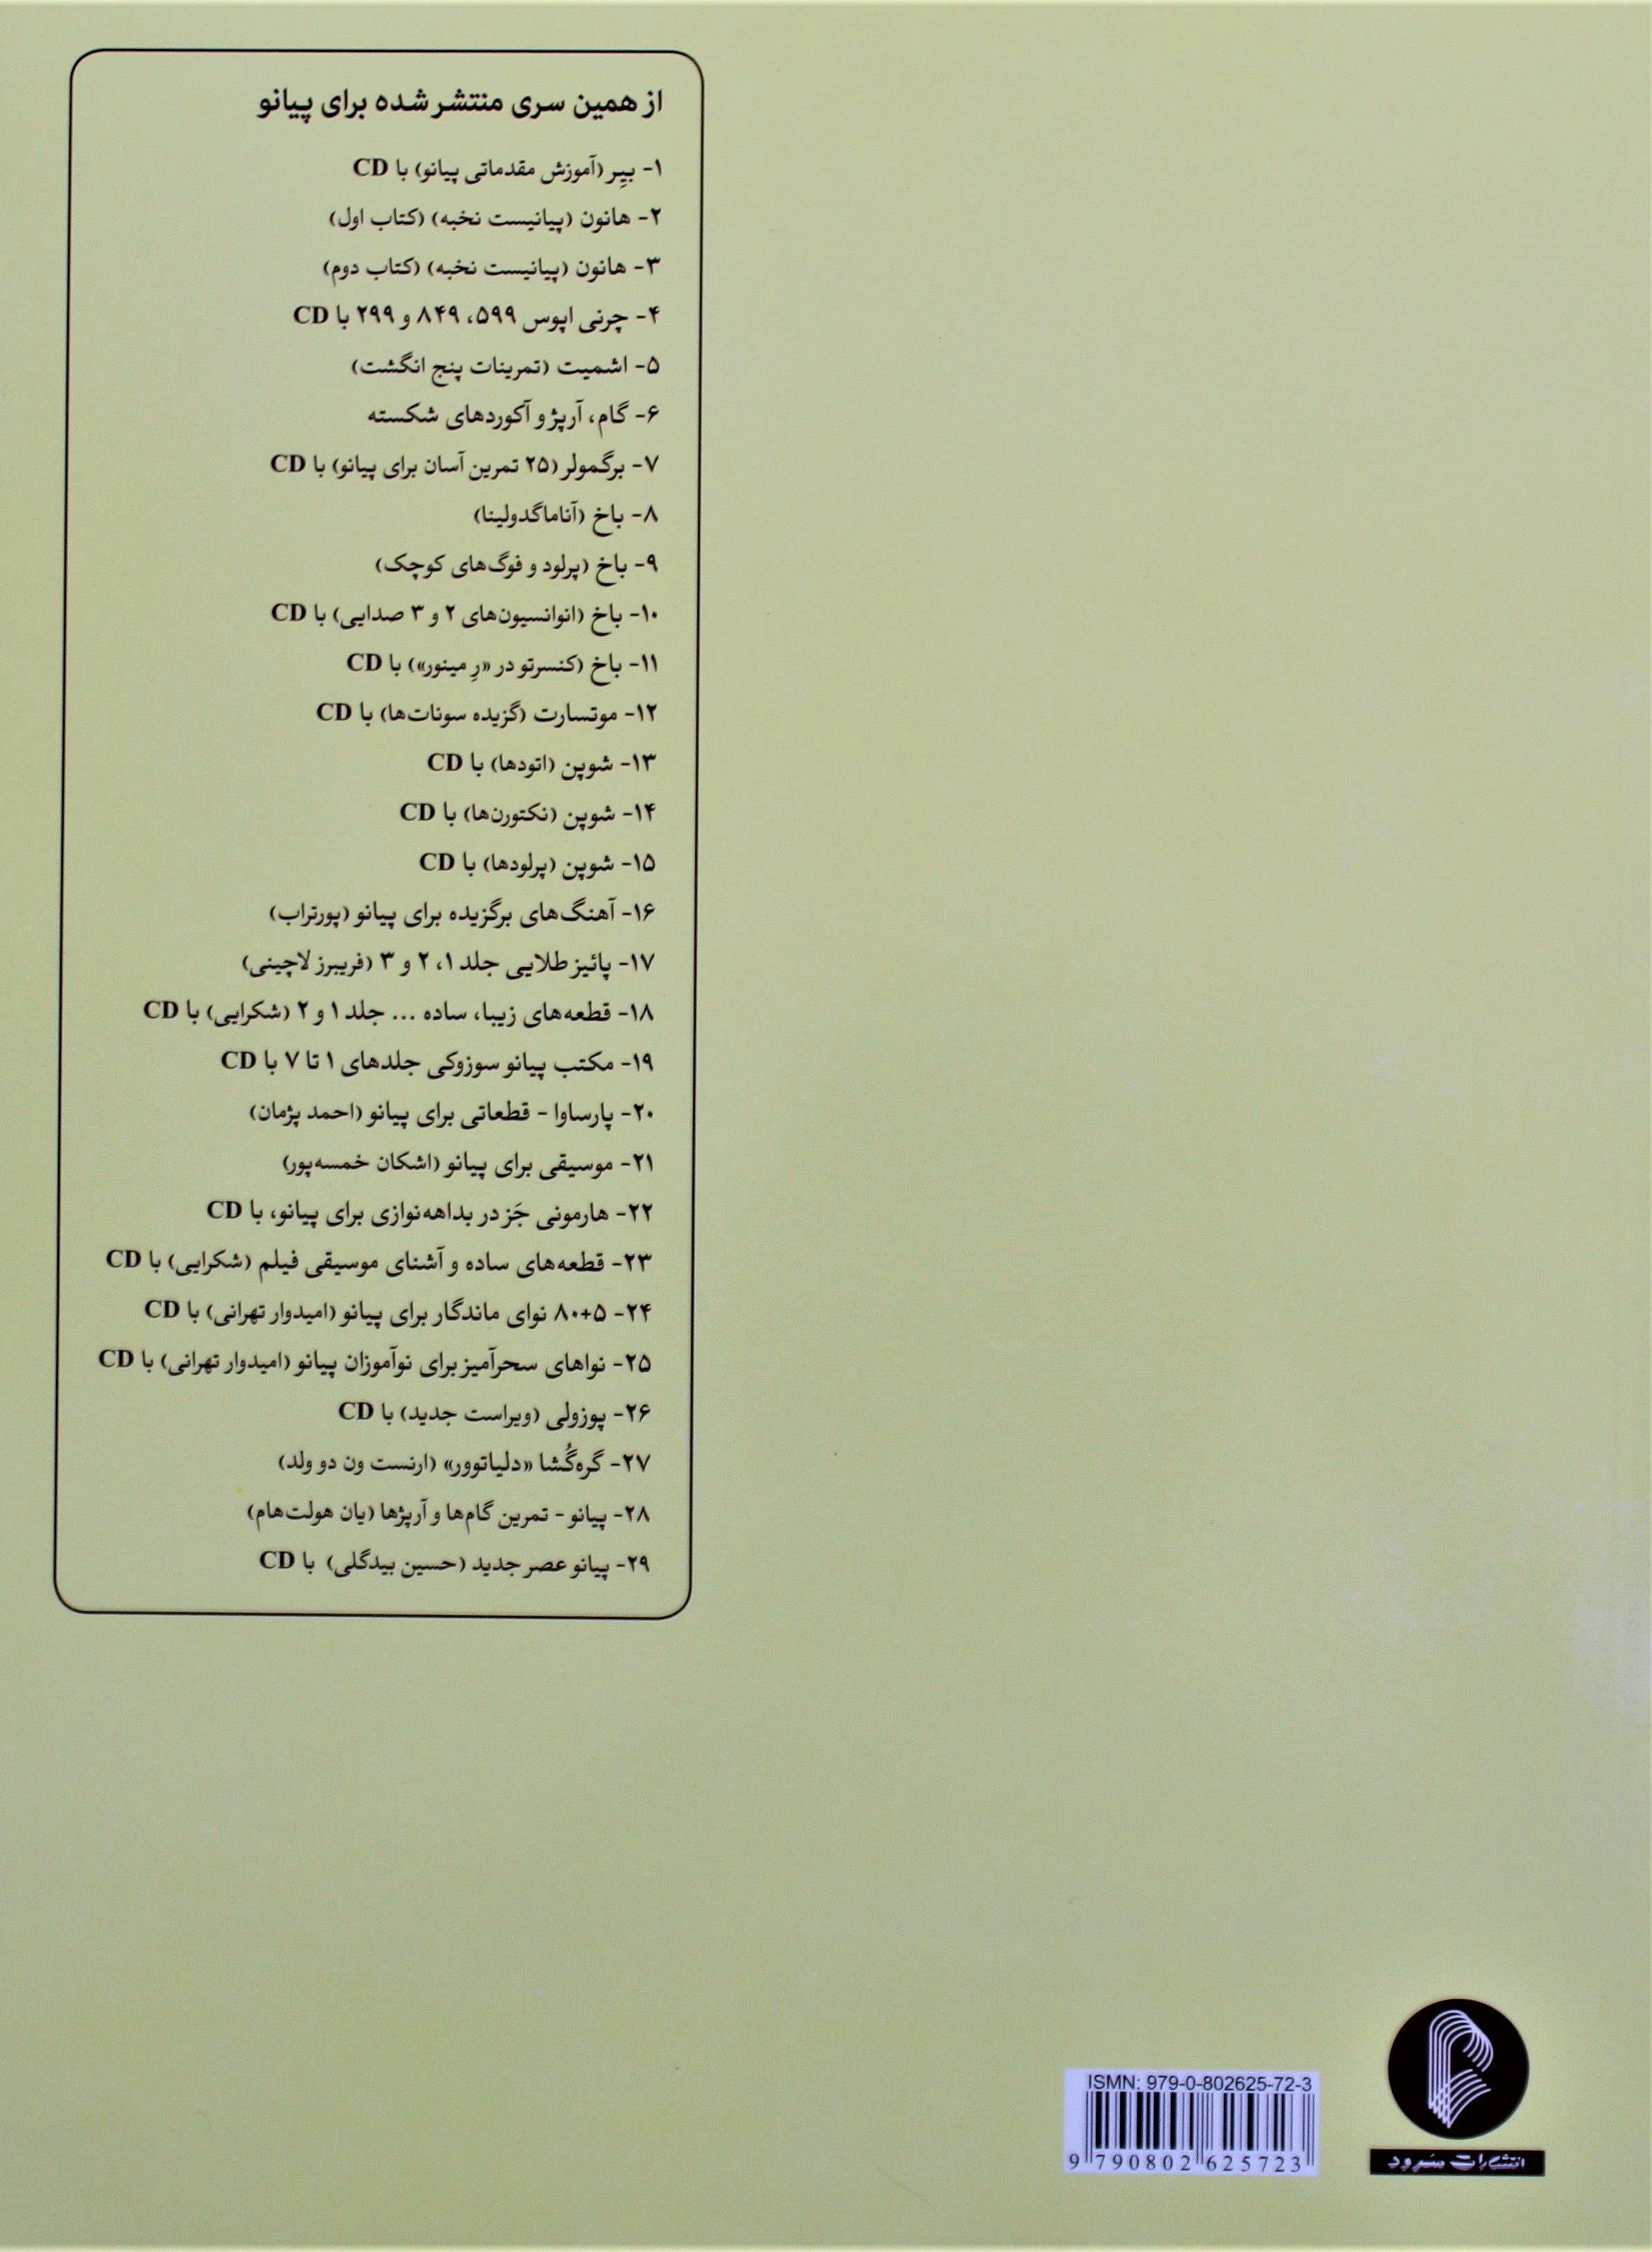 از همین سری منتشر شده برای پیانو
۱- بیِر (آموزش مقدماتی پیانو) با CD
۲- هانون (پیانیست نخبه) (کتاب اول)
۳- هانون (پیانیست نخبه) (کتاب دوم)
۴- چرنی اپوس ۵۹۹، ۸۴۹ و ۲۹۹ با CD
۵- اشمیت (تمرینات پنج انگشت)
۶- گام، آرپژ و آکوردهای شکسته
۷- برگمولر (۲۵ تمرین آسان برای پیانو) با CD
۸- باخ (آناماگدولینا)
۹- باخ (پرلود و فوگ‌های کوچک)
۱۰- باخ (انوانسیون‌های ۲ و ۳ صدایی) با CD
۱۱- باخ (کنسرتو در «رِ مینور») با CD
۱۲- موتسارت (گزیده سونات‌ها) با CD
۱۳- شوپن (اتودها) با CD
۱۴- شوپن (نکتورن‌ها) با CD
۱۵- شوپن (پرلودها) با CD
۱۶- آهنگ‌های برگزیده برای پیانو (پورتراب)
۱۷- پائیز طلایی جلد ۱، ۲ و ۳ (فریبرز لاچینی)
۱۸- قطعه‌های زیبا، ساده ... جلد ۱ و ۲ (شکرایی) با CD
۱۹- مکتب پیانو سوزوکی جلدهای ۱ تا ۷ با CD
۲۰- پارساوا - قطعاتی برای پیانو (احمد پژمان)
۲۱- موسیقی برای پیانو (اشکان خمسه‌پور)
۲۲- هارمونی جَز در بداهه‌نوازی برای پیانو، با CD
۲۳- قطعه‌های ساده و آشنای موسیقی فیلم (شکرایی) با CD
۲۴- ۵+۸۰ نوای ماندگار برای پیانو (امیدوار تهرانی) با CD
۲۵- نواهای سحرآمیز برای نوآموزان پیانو (امیدوار تهرانی) با CD
۲۶- پوزولی (ویراست جدید) با CD
۲۷- گره‌گُشا «دلیاتوور» (ارنست ون دو ولد)
۲۸- پیانو - تمرین گام‌ها و آرپژها (یان هولت‌هام)
۲۹- پیانو عصر جدید (حسین بیدگلی) با CD
ISMN: 979-0-802625-72-3
9 790802 625723
انتشارات سرود